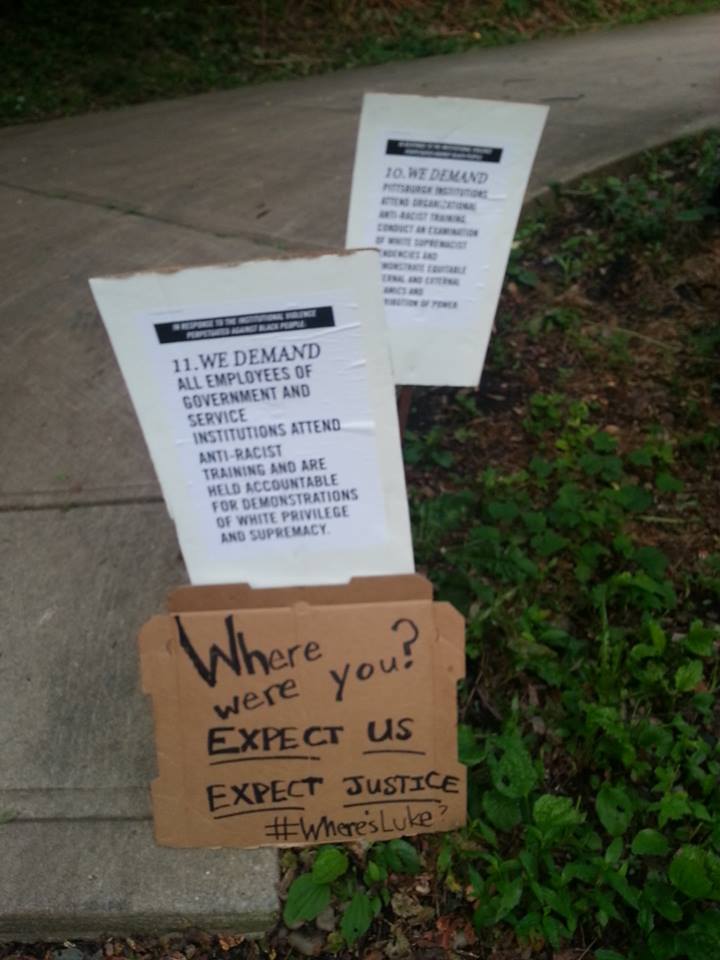 IN RESPONSE TO THE INSTITUTIONAL VIOLENCE
PERPETUATED AGAINST BLACK PEOPLE:
10. WE DEMAND
PITTSBURGH INSTITUTIONS
ATTEND ORGANIZATIONAL
ANTI-RACIST TRAINING,
CONDUCT AN EXAMINATION
OF WHITE SUPREMACIST
ENDENCIES AND
MONSTRATE EQUITABLE
ERNAL AND EXTERNAL
AMICS AND
RIBUTION OF POWER
IN RESPONSE TO THE INSTITUTIONAL VIOLENCE
PERPETUATED AGAINST BLACK PEOPLE:
11. WE DEMAND
ALL EMPLOYEES OF
GOVERNMENT AND
SERVICE
INSTITUTIONS ATTEND
ANTI-RACIST
TRAINING AND ARE
HELD ACCOUNTABLE
FOR DEMONSTRATIONS
OF WHITE PRIVILEGE
AND SUPREMACY.
Where
were you?
EXPECT US
EXPECT JUSTICE
#Where'sLuke?